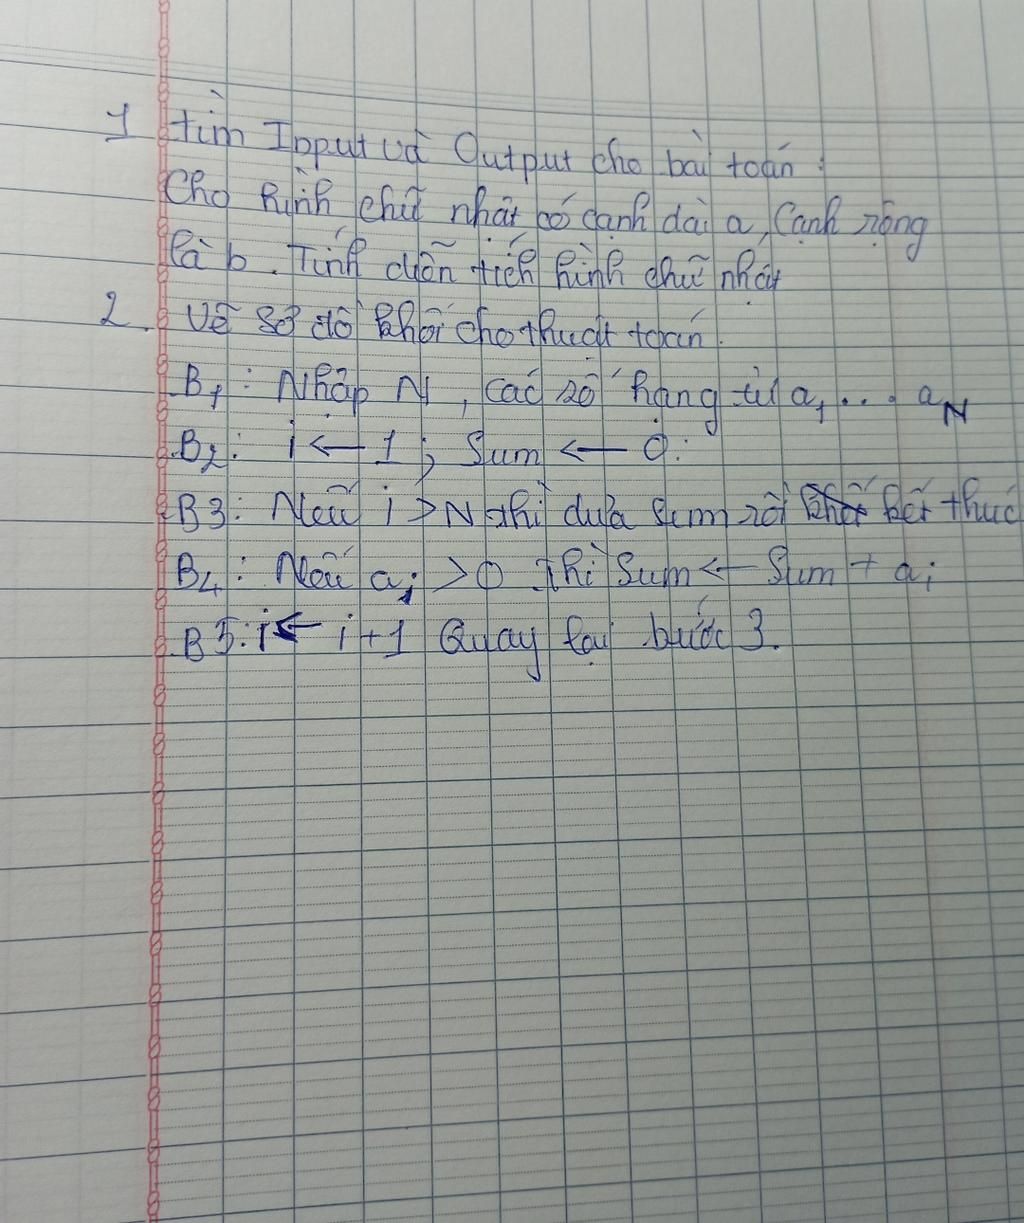 1 tìm Input và Output cho bài toán :
Cho hình chữ nhật có cạnh dài a, Cạnh rộng
là b. Tính diện tích hình chữ nhật
2. Vẽ sơ đồ khối cho thuật toán.
B1: Nhập N, các số hạng từ a1,... aN
B2: i ← 1; Sum ← 0.
B3: Nếu i > N thì đưa Sum rồi kết thúc
B4: Nếu ai > 0 thì Sum ← Sum + ai
B5: i ← i+1 Quay lại bước 3.